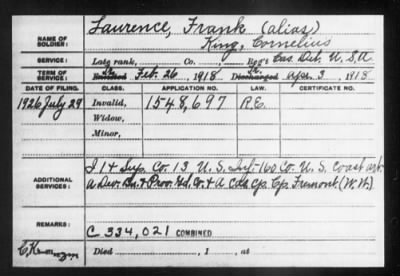 Laurence, Frank (alias)
NAME OF SOLDIER: King, Cornelius
SERVICE: Late rank, Co. , Reg't Cas. Det. U.S.A.
TERM OF SERVICE: Enlisted Feb. 26, 1918. Discharged Apr. 3, 1918
DATE OF FILING. CLASS. APPLICATION NO. LAW. CERTIFICATE NO.
1926 July 29 Invalid, 1548,697
Widow,
Minor,
I & Sup. Co. 13 U.S. Inf- 160 Co. U.S. Coast Art-
ADDITIONAL SERVICES: a Dev. Bn. & Prov. Gd. Co. & A Cas. Cp. Cp. Fremont. (W.W.)
REMARKS:
C 334,021 COMBINED
Died , 1 , at